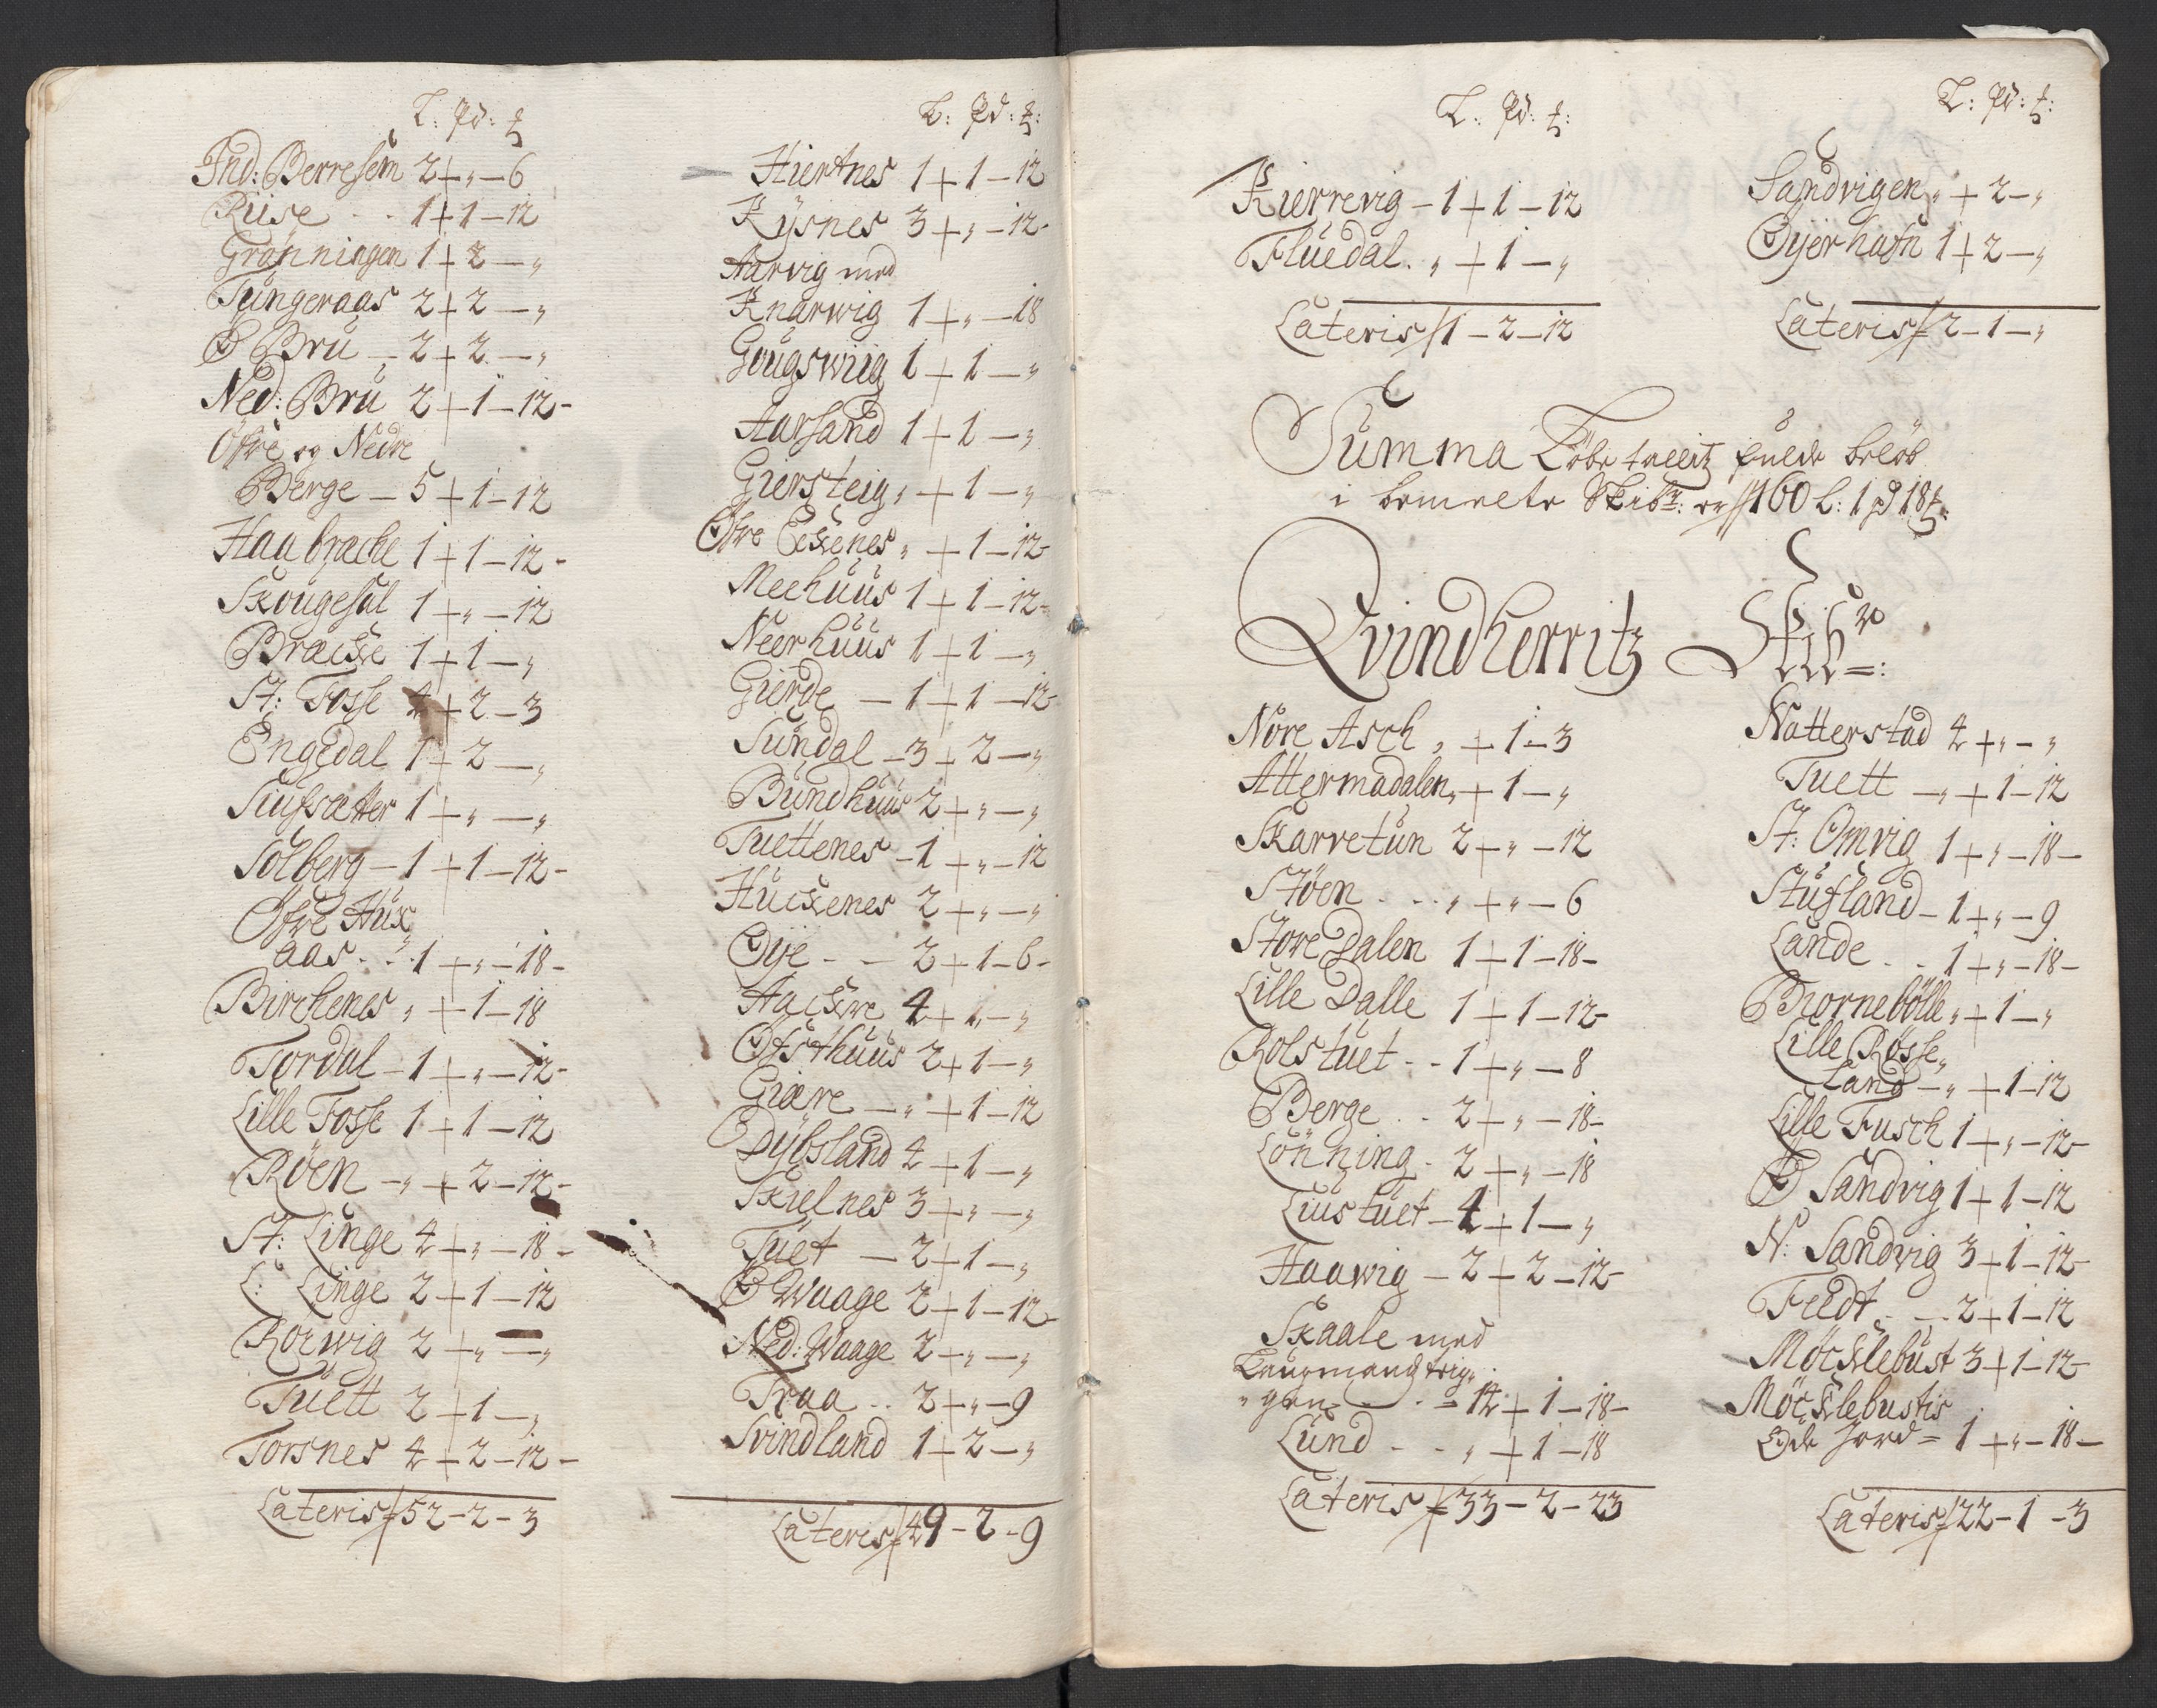 L: Pd: ℔
Ind: Berresem 2+„—6
Riise - - 1+1—12
Grönningen 1+2—„
Tüngeraas 2+2—„
Ø Brü — 2+2—„
Ned: Brü 2+1—12-
Öfre og Nedre
Berge — 5+1—12
Haabrache 1+1—12-
Skougesal 1+„—12
Bracke 1+1—„
St: Fosse 4+2—3
Engedal 1+2—„
Siusætter 1+„—„
Solberg — 1+1—12-
Öfre Hüs
aas - - 1+„—18-
Birchenes „+1—18
Tordal — 1+„—12-
Lille Fosse 1+1—12
Röen —„+2—12-
St: Linge 4+„—18-
L: Linge 2+1—12
Rorwig 2+„—„
Tüett 2+1—„
Torsnes 4+2—12-
Lateris 52-2-3
L: Pd: ℔:
Hiertnes 1+1—12
Kysnes 3+„—12-
Aarvig med
Knarwig 1+„—18
Gougswiig 1+1—„
Aarsand 1+1—„
Giersteig „+1—„
Öfre Eckenes „+1—12-
Meehuus 1+1—12-
Neerhuus 1+1—„
Gierde — 1+1—12-
Sündal — 3+2—„
Bündhuus 2+„—„
Tuettenes — 1+„—12
Hückenes 2+„—„
Öije - — 2+1—6-
Aackre 4+1—„
Öfsthuus 2+1—„
Giære —„+1—12
Dybsland 4+1—„
Skielnes 3+„—„
Tuet — 2+1—„
Ø Waage 2+1—12-
Ned: Waage 2+„—„
Traa - - 2+„—9
Svindland 1+2—„
Lateris 49-2-9
L: Pd: ℔:
Kierrevig — 1+1—12
Flüedal. „+1—„
Lateris 1-2-12
L: Pd: ℔:
Sandvigen „+2—„
Öijerhafn 1+2—„
Lateris 2-1-„
Summa Löbe taeltz fulde belöb
i bemelte Skibr: er 160 L: 1 pd 18 ℔:
Qvindherritz Skibr:
Nore Asch „+1—3
Attermadalen „+1—„
Skarvetün 2+„—12
Stöen - - „+„—6
Store Dalen 1+1—18-
Lille Dalle 1+1—12-
Rolstuet - - 1+„—8
Berge - - 2+„—18-
Lönning - 2+„—18
Liustuet — 4+1—„
Haawig — 2+2—12-
Skaale med
Kaupmandtrig„
„gen - = 14+1—18-
Lünd - - „+1—18
Lateris 33-2-23
Natterstad 4+„—„
Tuett —„+1—12
St: Omvig 1+„—18-
Stüfland — 1+„—9
Lande - - 1+„—18-
Biornebölle „+1—„
Lille Rösse„
Land —„+1—12
Lille Fusch 1+„—12-
Ø Sandvig 1+1—12
N: Sandvig 3+1—12-
Feedt - — 2+1—12
Möcklebust 3+1—12-
Möcklebustis
Øde Jord = 1+„—18-
Lateris 22-1-3